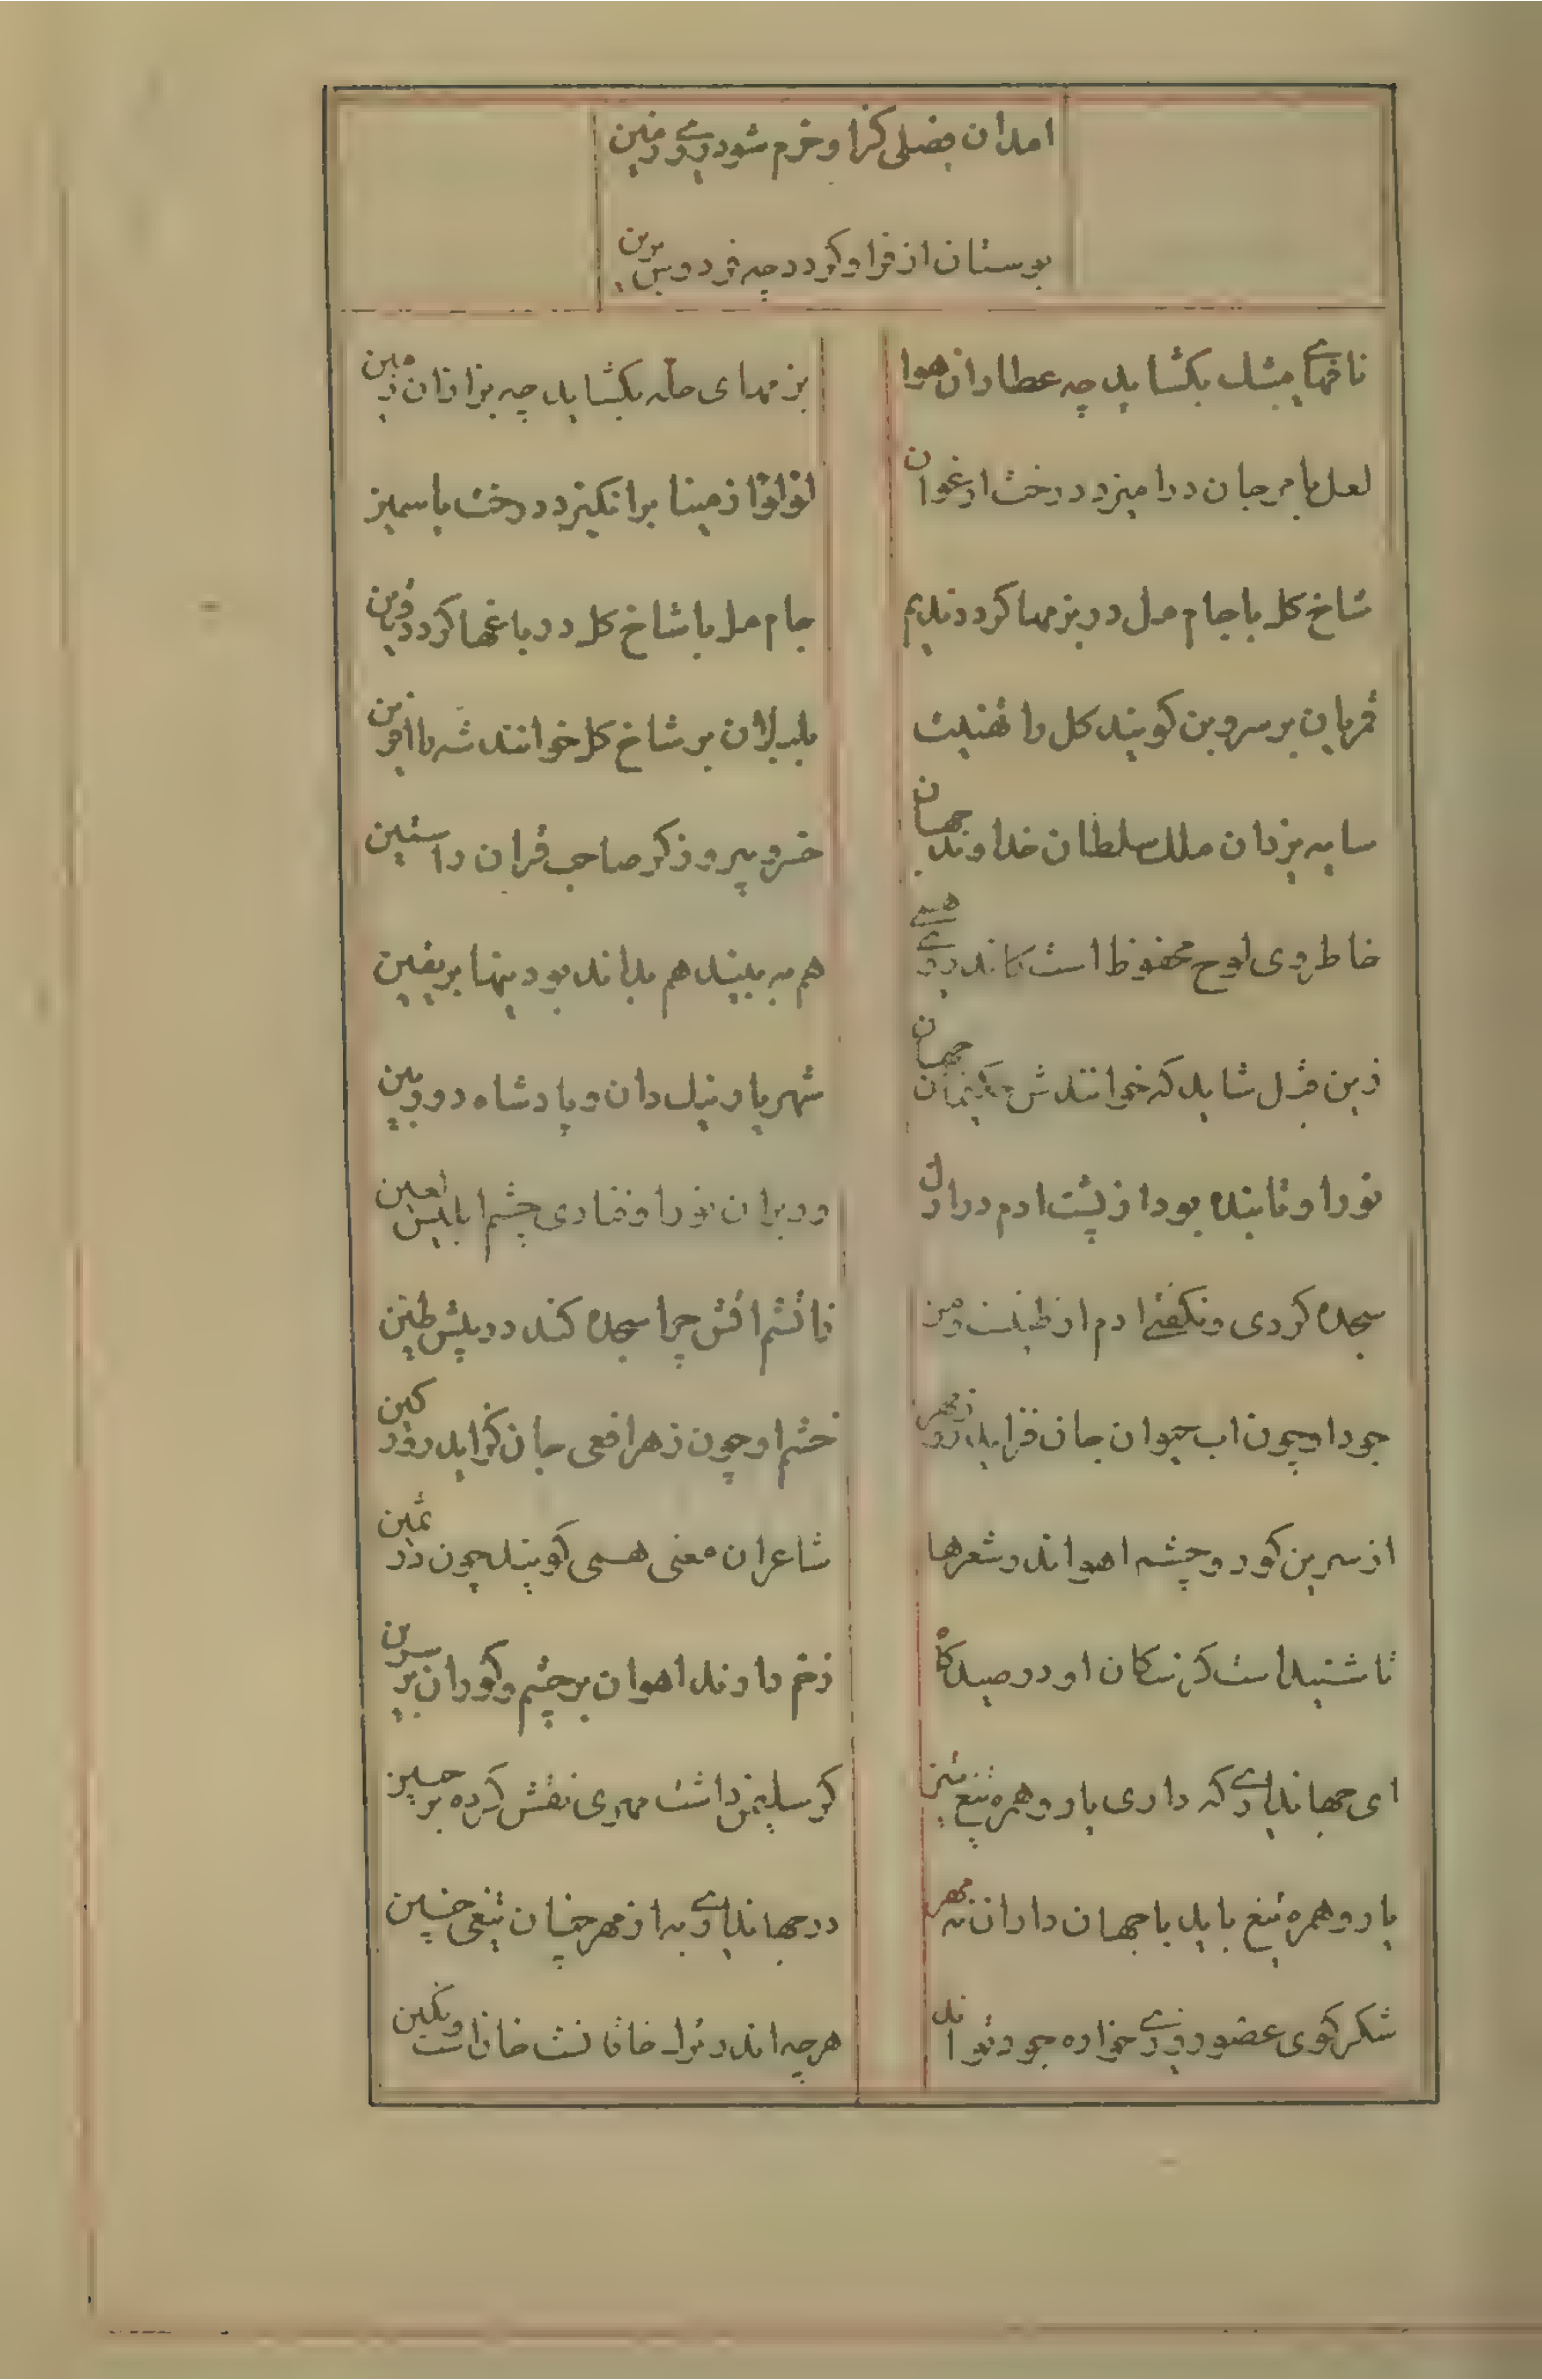 امد ان فصلی کزا و خرم شود روی زمین
بوستان از فر او کردد چه فردوس برین
نافهای مشک بکشاید چه عطاران هوا
بزمهای حله بکشاید چه بزازان زمین
لعل با مرجان درامیزد درخت ارغوان
لولو از مینا برانکیزد درخت یاسمین
شاخ کل با جام مل در بزمها کردد ندیم
جام مل با شاخ کل در باغها کردد قرین
قمریان بر سروبن کویند کل را تهنیت
بلبلان بر شاخ کل خوانند شه را افرین
سایه یزدان ملک سلطان خداوند جهان
خسرو پیروزکر صاحب قران راستین
خاطر وی لوح محفوظ است کاندر وی همی
هم به بیند هم بداند بودینها بر یقین
زین قبل شاید که خوانندش حکیمان جهان
شهریار نیک دان و پادشاه دوربین
نور او تابنده بود از پشت ادم در ازل
ور بران نور اوفتادی چشم ابلیس لعین
سجده کردی و نکفتی ادم از طینست و من
ز اتشم اتش چرا سجده کند در پیش طین
جود او چون اب حیوان جان فزاید روز مهر
خشم او چون زهر افعی جان کزاید روز کین
از سرین کور و چشم اهو اندر شعرها
شاعران معنی همی کویند چون در ثمین
تا شنیداست کز سکان او در صیدکاه
زخم دارند اهوان بر چشم و کوران بر سرین
ای جهانداری که داری یار و همره تیغ تیز
کر سلیمن داشت مهری نقش کرده بر جبین
یار و همره تیغ باید با جهان داران نه مهر
در جهانداری به از مهر چنان تیغی چنین
شکر کوی عضو روزی خواره جود تواند
هرچه اندر نزل خاقانست خانراست و تکین